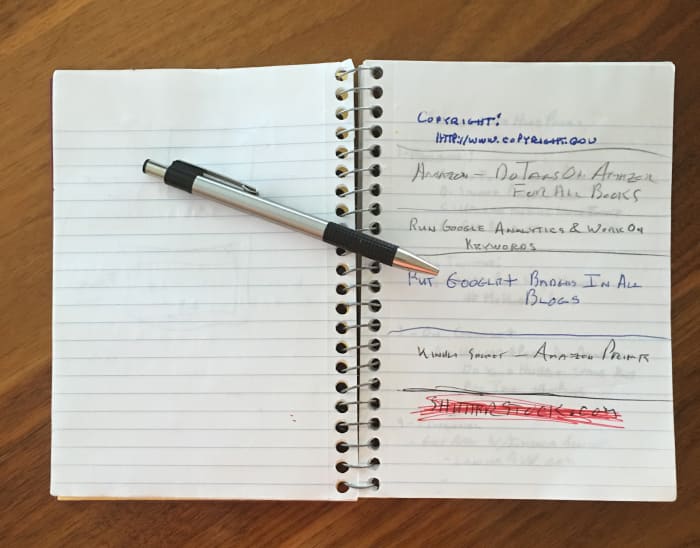 COPYRIGHT!
HTTP://WWW.COPYRIGHT.GOV
AMAZON - DO TAGS ON AMAZON
FOR ALL BOOKS
RUN GOOGLE ANALYTICS & WORK ON
KEYWORDS
PUT GOOGLE+ BADGES IN ALL
BLOGS
KINDLE - AMAZON PRIME
SHUTTERSTOCK.COM